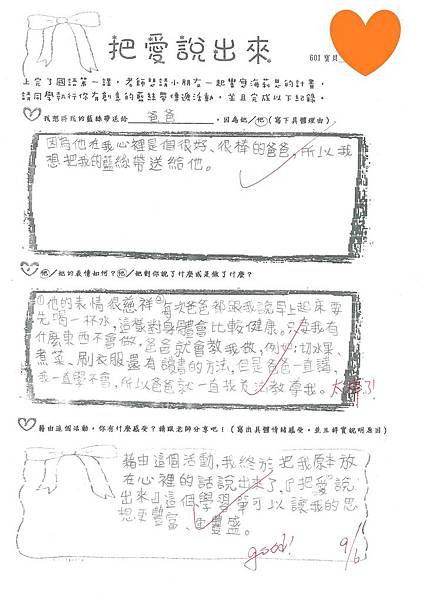 把愛說出來
601 寶貝
上完了國語第一課,老師想請小朋友一起響應海莉思的計畫,
請同學執行你有創意的藍絲帶傳遞活動,並且完成以下紀錄。
我想將我的藍絲帶送給 爸爸 ,因為她/他(寫下具體理由)
因為他在我心裡是個很好、很棒的爸爸,所以我
想把我的藍絲帶送給他。
他/她的表情如何?他/她對你說了什麼或是做了什麼?
①他的表情很慈祥②每次爸爸都跟我說早上起床要
先喝一杯水,這樣對身體會比較健康。只要我有
什麼東西不會做,爸爸就會教我做,例如:切水果、
煮菜、刷衣服還有讀書的方法,但是爸爸一直講,
我一直學不會,所以爸爸就一直
教導我。
藉由這個活動,你有什麼感受?請跟老師分享吧!(寫出具體情緒感受,並且詳實說明原因)
藉由這個活動,我終於把我原本放
在心裡的話說出來了,『把愛說
出來』這個學習單可以讓我的思
想更豐富、更豐盛。
good!
9/6